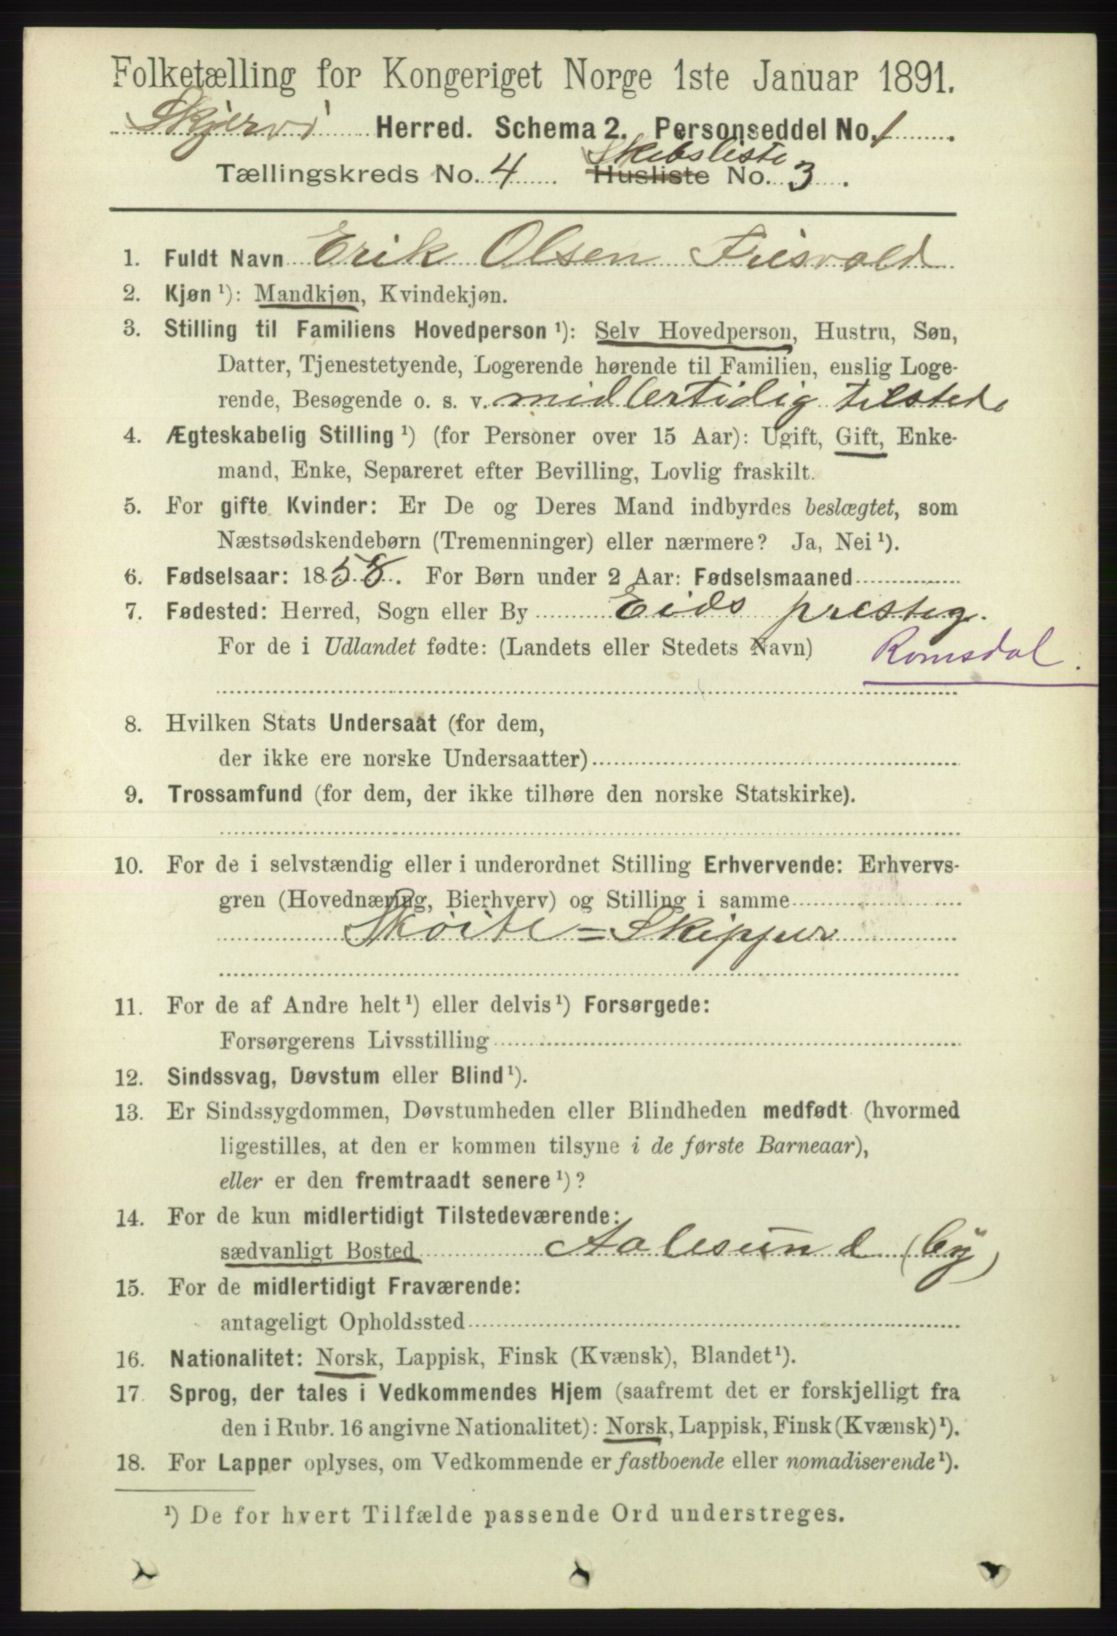 Folketælling for Kongeriget Norge 1ste Januar 1891.
Skjervø Herred. Schema 2. Personseddel No. 1.
Skibsliste
Tællingskreds No. 4 Husliste No. 3.
1. Fuldt Navn Erik Olsen Frisvold
2. Kjøn ¹): Mandkjøn, Kvindekjøn.
3. Stilling til Familiens Hovedperson ¹): Selv Hovedperson, Hustru, Søn,
Datter, Tjenestetyende, Logerende hørende til Familien, enslig Loge-
rende, Besøgende o. s. v. midlertidig tilstede
4. Ægteskabelig Stilling ¹) (for Personer over 15 Aar): Ugift, Gift, Enke-
mand, Enke, Separeret efter Bevilling, Lovlig fraskilt.
5. For gifte Kvinder: Er De og Deres Mand indbyrdes beslægtet, som
Næstsødskendebørn (Tremenninger) eller nærmere? Ja, Nei ¹).
6. Fødselsaar: 1858. For Børn under 2 Aar: Fødselsmaaned
7. Fødested: Herred, Sogn eller By Eids presteg.
For de i Udlandet fødte: (Landets eller Stedets Navn) Romsdal.
8. Hvilken Stats Undersaat (for dem,
der ikke ere norske Undersaatter)
9. Trossamfund (for dem, der ikke tilhøre den norske Statskirke).
10. For de i selvstændig eller i underordnet Stilling Erhvervende: Erhvervs-
gren (Hovednæring, Bierhverv) og Stilling i samme
Skøite = Skipper
11. For de af Andre helt ¹) eller delvis ¹) Forsørgede:
Forsørgerens Livsstilling
12. Sindssvag, Døvstum eller Blind ¹).
13. Er Sindssygdommen, Døvstumheden eller Blindheden medfødt (hvormed
ligestilles, at den er kommen tilsyne i de første Barneaar),
eller er den fremtraadt senere ¹)?
14. For de kun midlertidigt Tilstedeværende:
sædvanligt Bosted Aalesund (by)
15. For de midlertidigt Fraværende:
antageligt Opholdssted
16. Nationalitet: Norsk, Lappisk, Finsk (Kvænsk), Blandet ¹).
17 Sprog, der tales i Vedkommendes Hjem (saafremt det er forskjelligt fra
den i Rubr. 16 angivne Nationalitet): Norsk, Lappisk, Finsk (Kvænsk) ¹).
18. For Lapper oplyses, om Vedkommende er fastboende eller nomadiserende ¹).
¹) De for hvert Tilfælde passende Ord understreges.